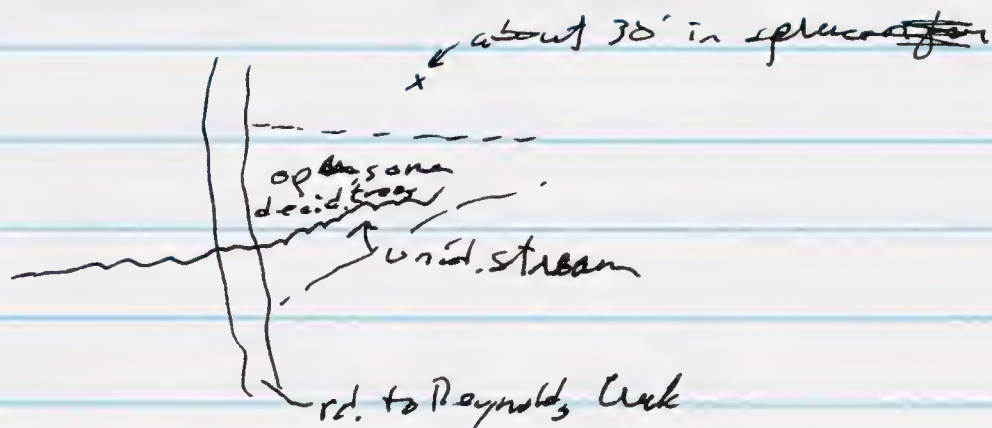 about 30' in spruce
x
open some
decid. trees
unid. stream
rd. to Reynolds Creek